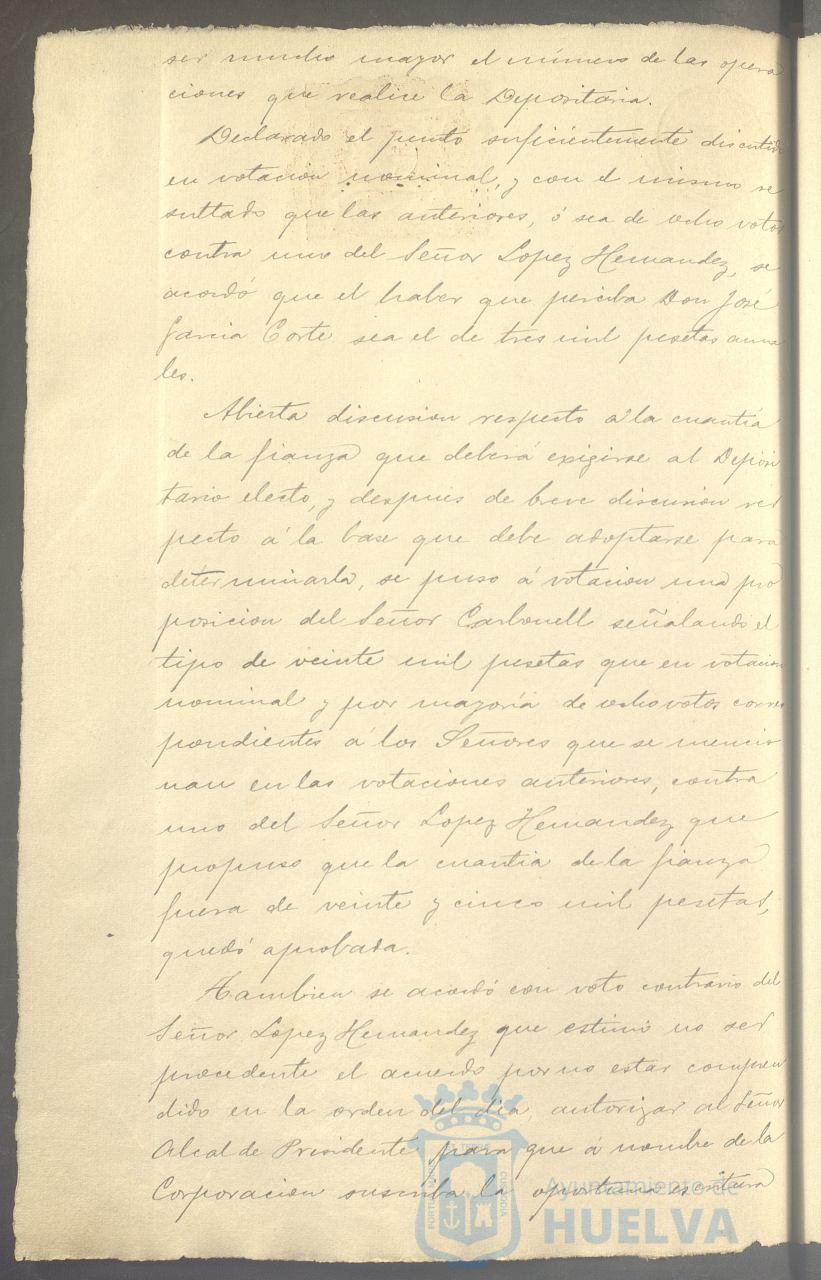 ser mucho mayor el número de las opera
ciones que realice la Depositaria.
Declarado el punto suficientemente discutido
en votación nominal, y con el mismo re
sultado que las anteriores, ó sea de ocho votos
contra uno del Señor Lopez Hernandez, se
acordó que el haber que perciba Don José
Garcia Corte sea el de tres mil pesetas anua
les.
Abierta discusion respecto a la cuantía
de la fianza que deberá exigirse al Deposi
tario electo, y despues de breve discusion res
pecto á la base que debe adoptarse para
determinarla, se puso á votacion una pro
posicion del Señor Carbonell señalando el
tipo de veinte mil pesetas que en votacion
nominal y por mayoría de ocho votos corres
pondientes á los Señores que se mencio
nan en las votaciones anteriores, contra
uno del Señor Lopez Hernandez que
propuso que la cuantia de la fianza
fuera de veinte y cinco mil pesetas,
quedó aprobada.
Tambien se acordó con voto contrario del
Señor Lopez Hernandez que estimó no ser
procedente el acuerdo por no estar compren
dido en la orden del dia, autorizar al Señor
Alcalde Presidente para que á nombre de la
Corporacion suscriba la oportuna escritura
Ayuntamiento de
HUELVA